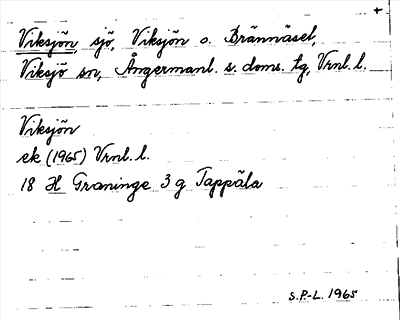 Viksjön, sjö, Viksjön o. Brännäset,
Viksjö sn, Ångermanl. s. doms. tg, Vrnl. l.
Viksjön
ek (1965) Vrnl. l.
18 H Graninge 3 g Tappäla
S.P.-L. 1965